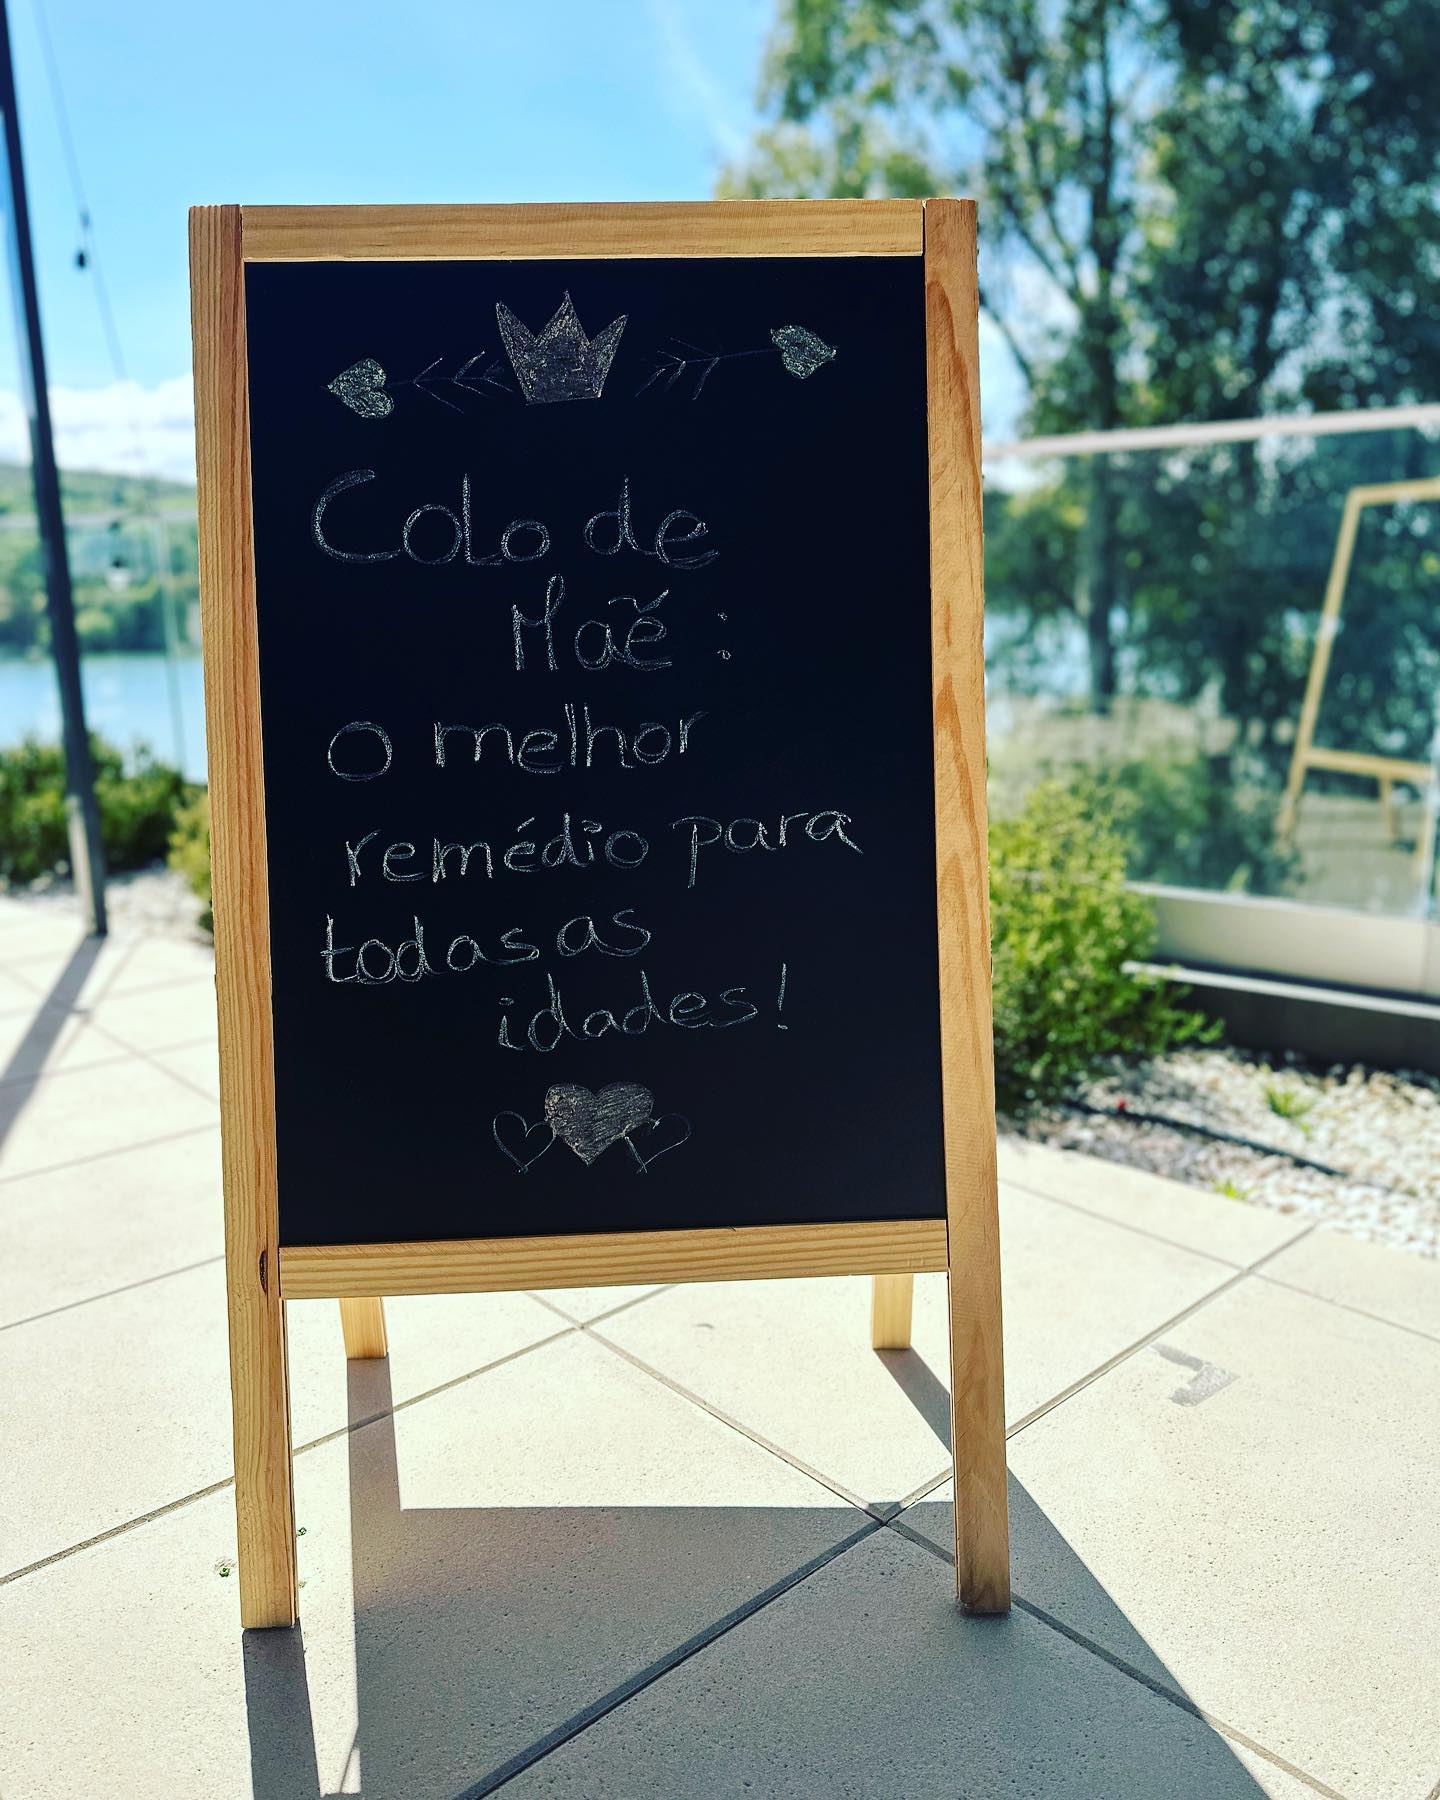 Colo de
Maẽ :
o melhor
remédio para
todas as
idades!